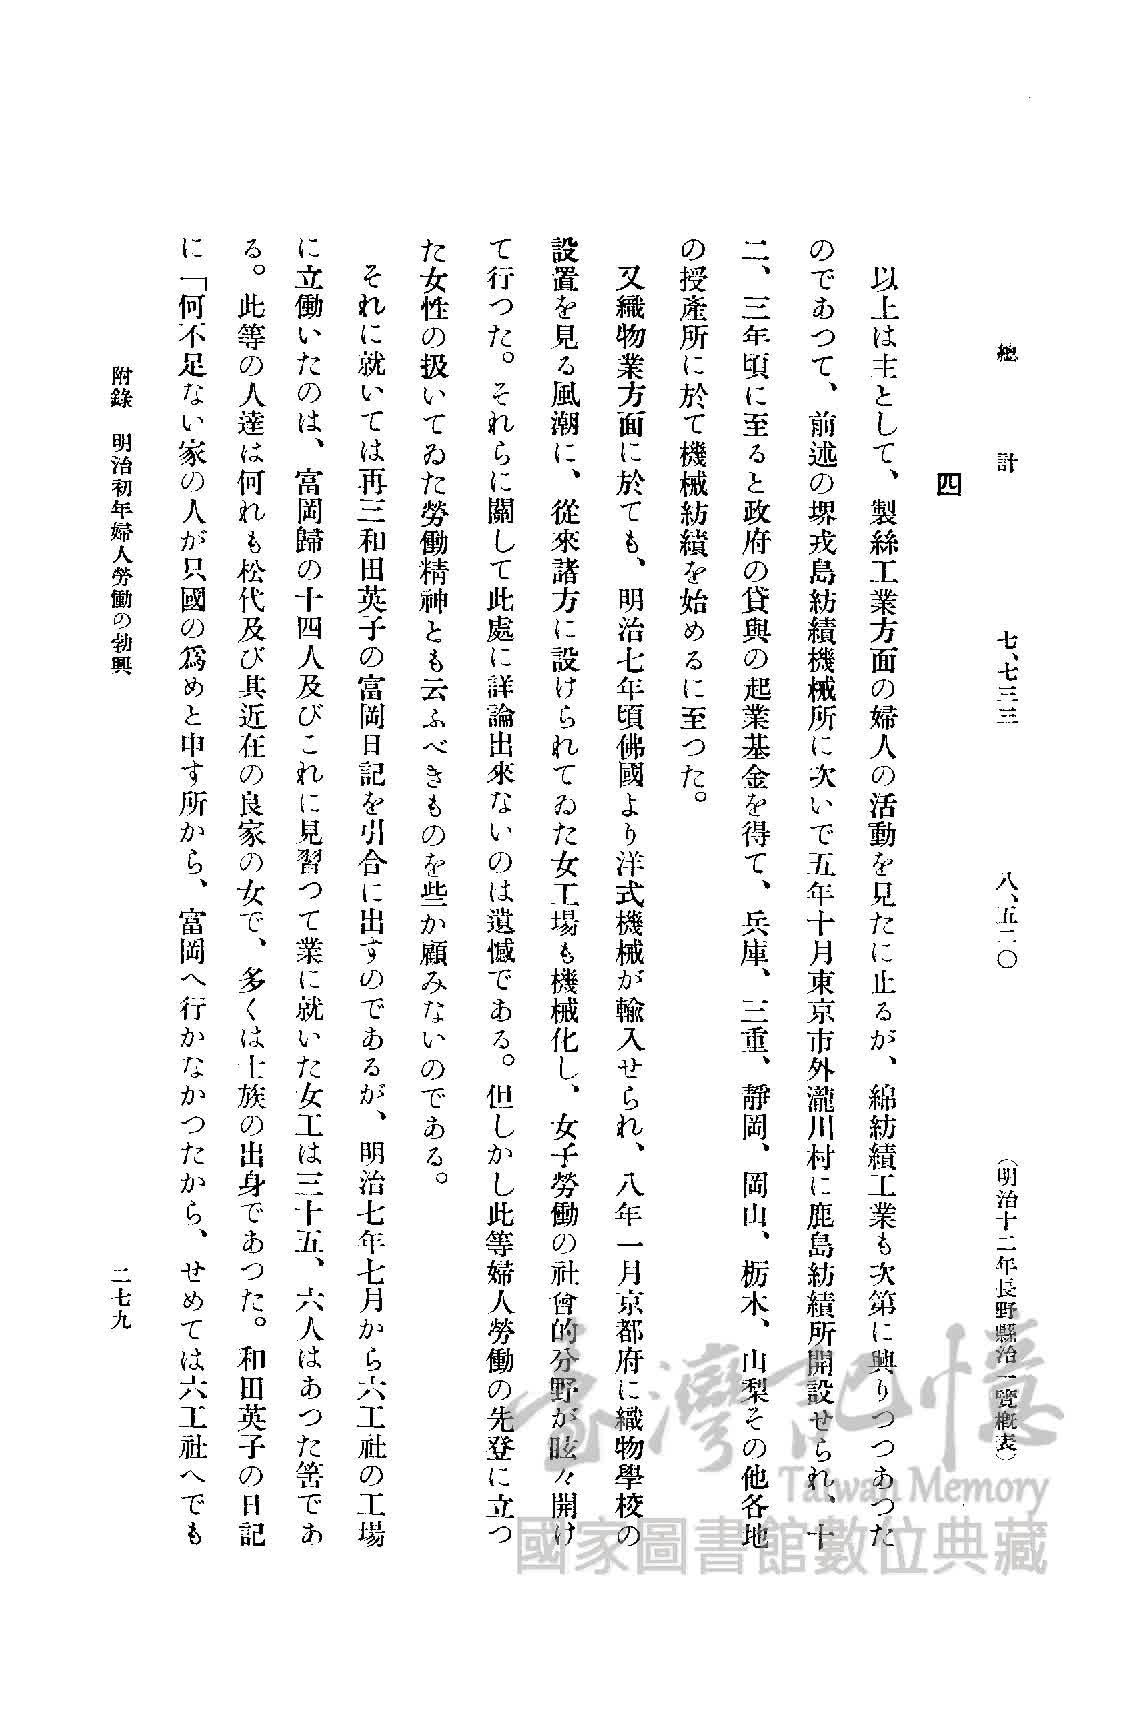 總計　七、七三三　八、五二〇　（明治十二年長野縣治一覽概表）
四
以上は主として、製絲工業方面の婦人の活動を見たに止るが、綿紡績工業も次第に興りつつあつた
のであつて、前述の堺戎島紡績機械所に次いで五年十月東京市外瀧川村に鹿島紡績所開設せられ、十
二、三年頃に至ると政府の貸與の起業基金を得て、兵庫、三重、靜岡、岡山、栃木、山梨その他各地
の授產所に於て機械紡績を始めるに至つた。
又織物業方面に於ても、明治七年頃佛國より洋式機械が輸入せられ、八年一月京都府に織物學校の
設置を見る風潮に、從來諸方に設けられてゐた女工場も機械化し、女子勞働の社會的分野が眩々開け
て行つた。それらに關して此處に詳論出來ないのは遺憾である。但しかし此等婦人勞働の先登に立つ
た女性の扱いてゐた勞働精神とも云ふべきものを些か顧みないのである。
それに就いては再三和田英子の富岡日記を引合に出すのであるが、明治七年七月から六工社の工場
に立働いたのは、富岡歸の十四人及びこれに見習つて業に就いた女工は三十五、六人はあつた筈であ
る。此等の人達は何れも松代及び其近在の良家の女で、多くは士族の出身であつた。和田英子の日記
に「何不足ない家の人が只國の爲めと申す所から、富岡へ行かなかつたから、せめては六工社へでも
附錄　明治初年婦人勞働の勃興　二七九
臺灣記憶
Taiwan Memory
國家圖書館數位典藏